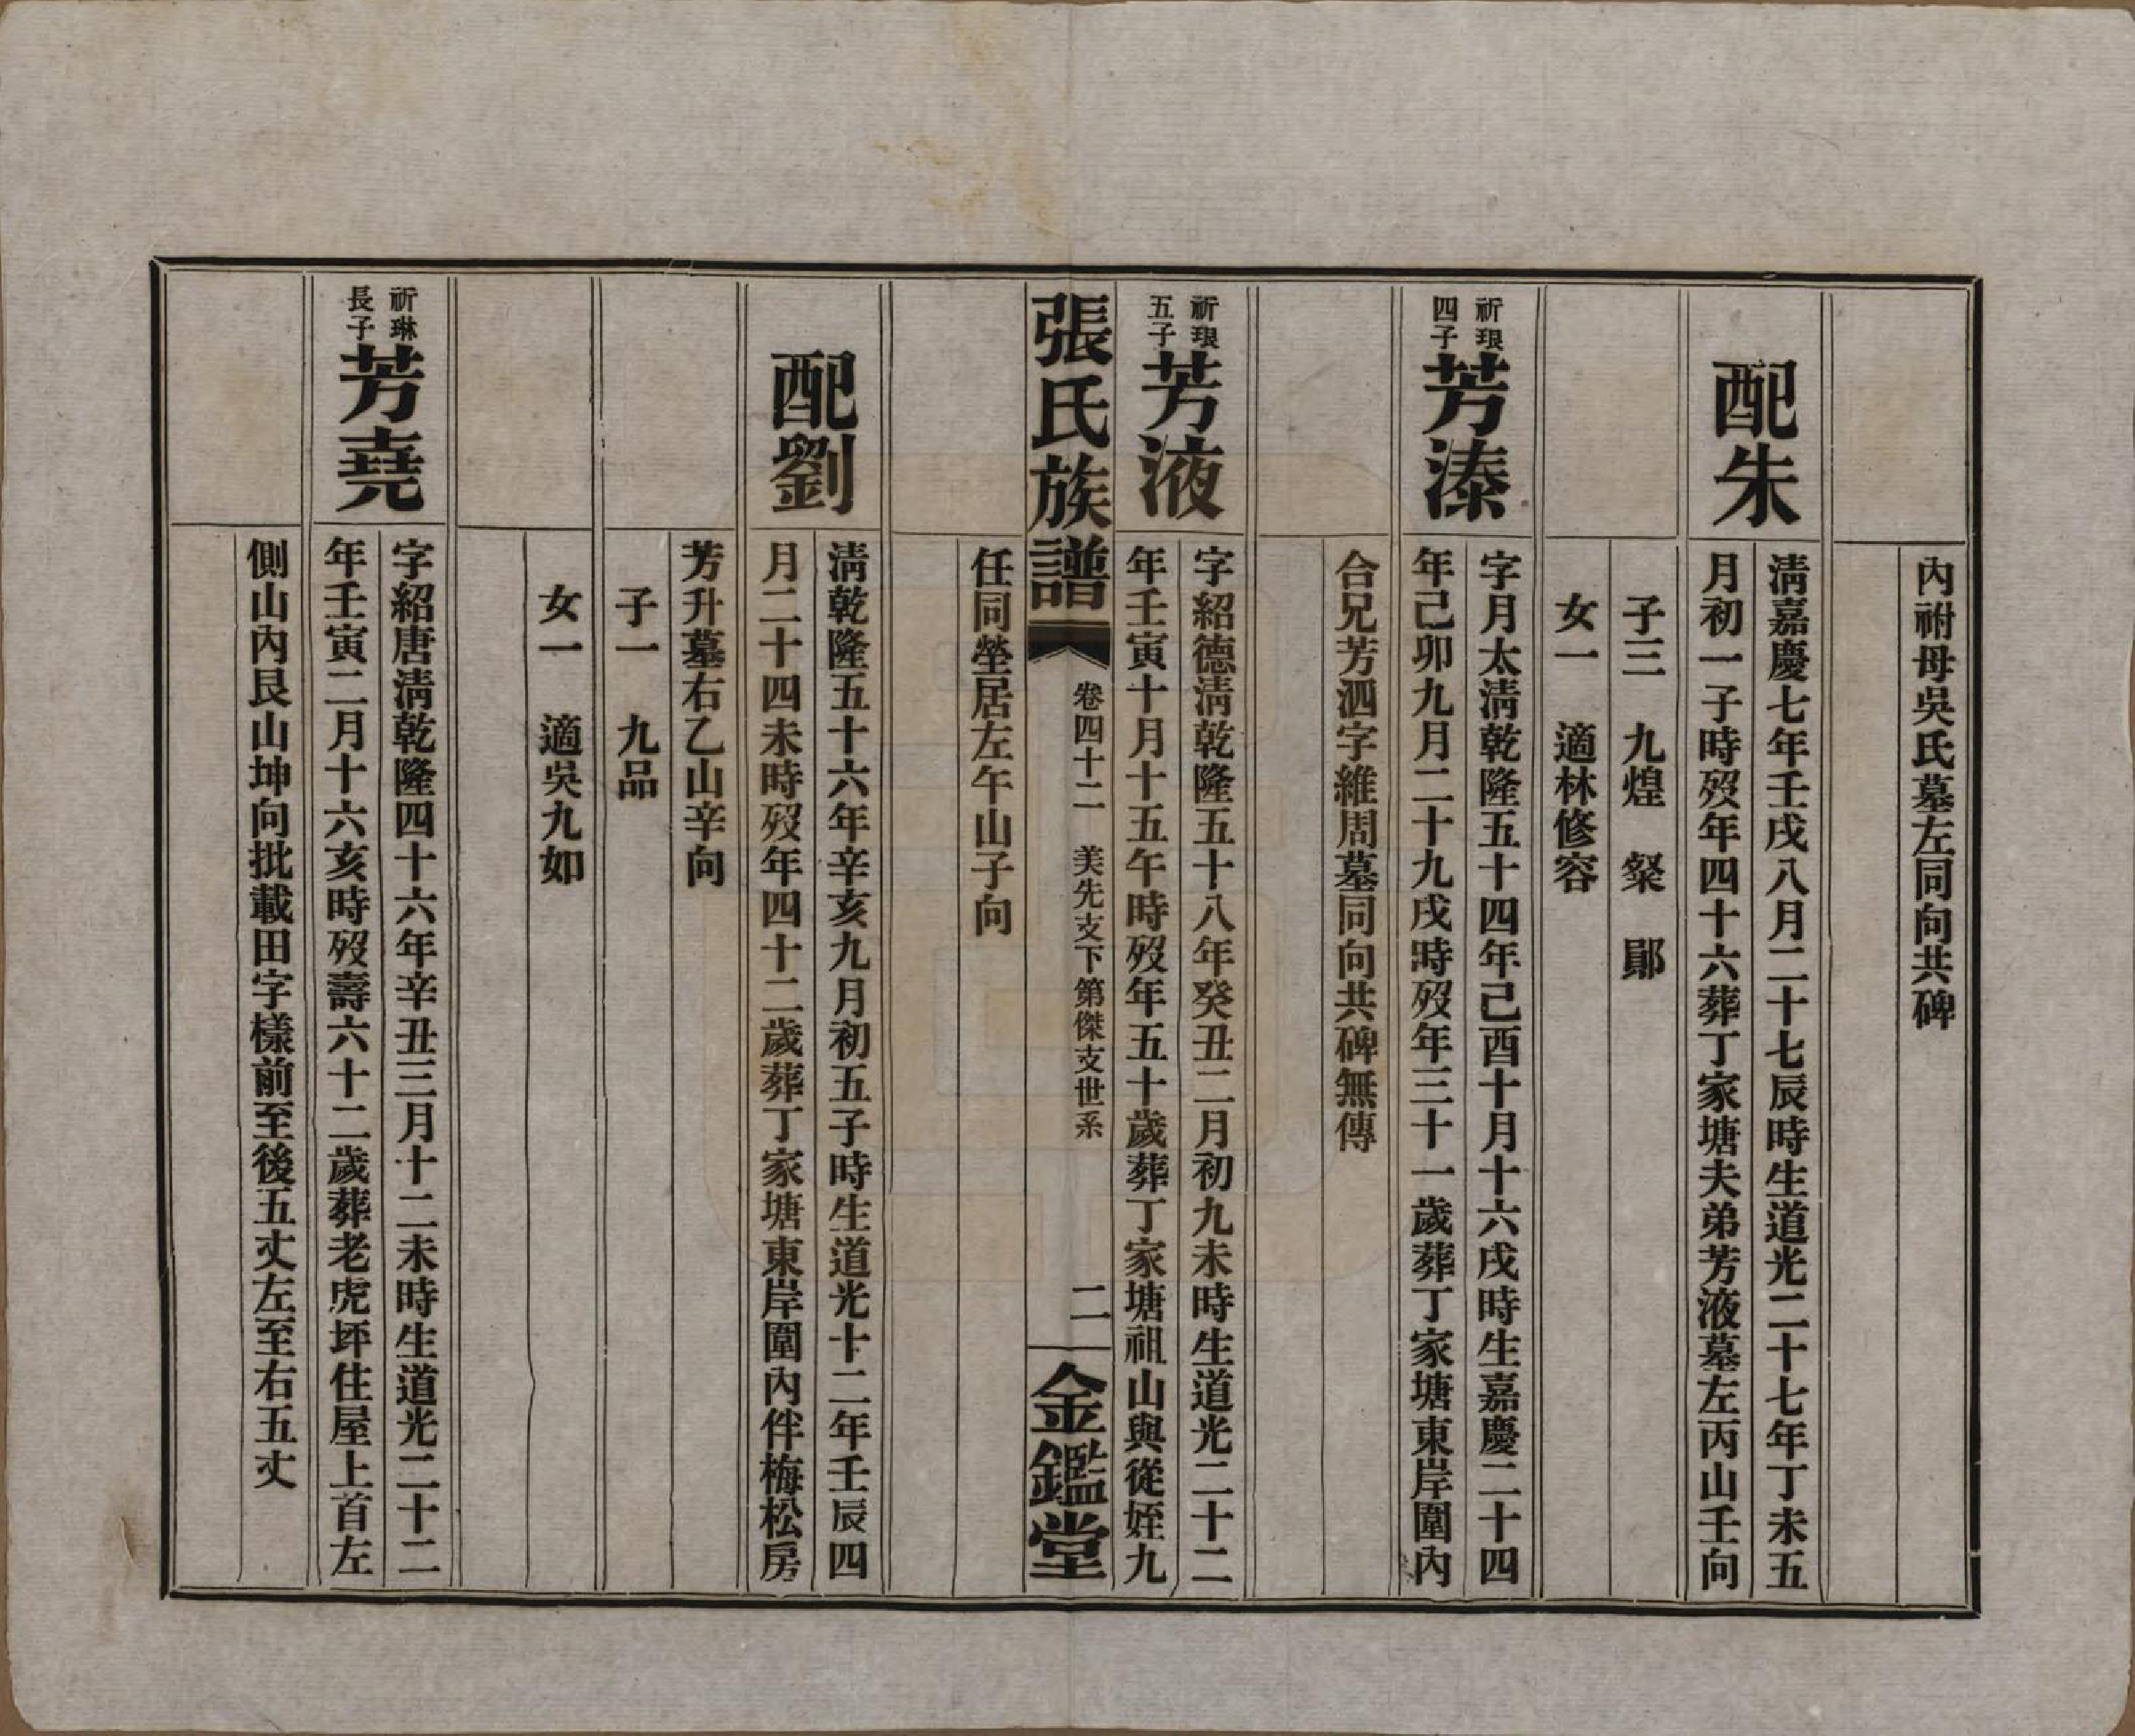 內祔母吳氏墓左同向共碑
配朱
淸嘉慶七年壬戌八月二十七辰時生道光二十七年丁未五
月初一子時歿年四十六葬丁家塘夫弟芳液墓左丙山壬向
子三　九煌　粲　鄖
女一　適林修容
祈珢
四子
芳溱
字月太淸乾隆五十四年己酉十月十六戌時生嘉慶二十四
年己卯九月二十九戌時歿年三十一歲葬丁家塘東岸圍內
合兄芳泗字維周墓同向共碑無傳
祈珢
五子
芳液
字紹德淸乾隆五十八年癸丑二月初九未時生道光二十二
年壬寅十月十五午時歿年五十歲葬丁家塘祖山與從姪九
張氏族譜
卷四十二　美先支下第傑支世系
二
金鑑堂
任同塋居左午山子向
配劉
淸乾隆五十六年辛亥九月初五子時生道光十二年壬辰四
月二十四未時歿年四十二歲葬丁家塘東岸圍內伴梅松房
芳升墓右乙山辛向
子一　九品
女一　適吳九如
祈琳
長子
芳堯
字紹唐淸乾隆四十六年辛丑三月十二未時生道光二十二
年壬寅二月十六亥時歿壽六十二歲葬老虎坪住屋上首左
側山內艮山坤向批載田字樣前至後五丈左至右五丈